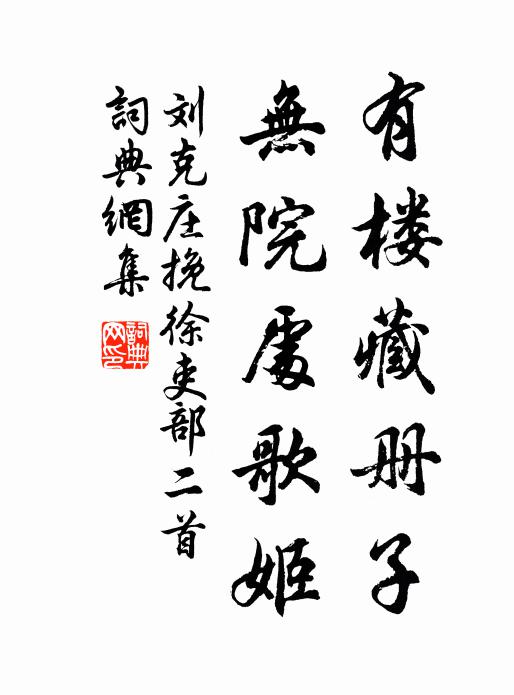 有楼藏册子
無院處歌姬
刘克庄挽徐吏部二首
詞典網集
詞典網印